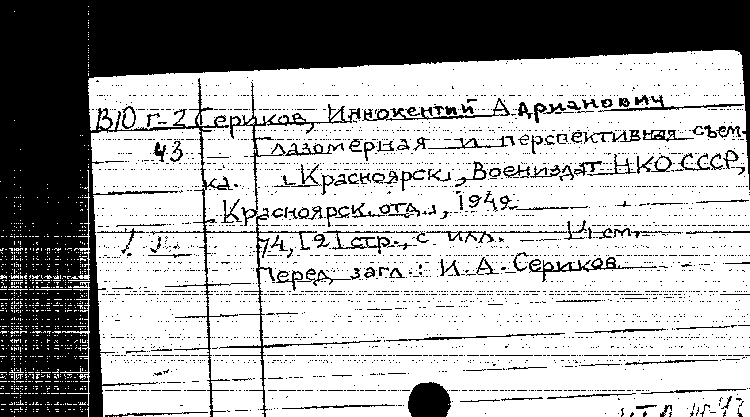 В10 г-2 Сериков, Иннокентий Адрианович
43 Глазомерная и перспективная съем-
ка. [Красноярск], Воениздат НКО СССР,
[Красноярск. отд.], 1942
74, [2] стр., с илл. 14 см.
Перед загл.: И. А. Сериков